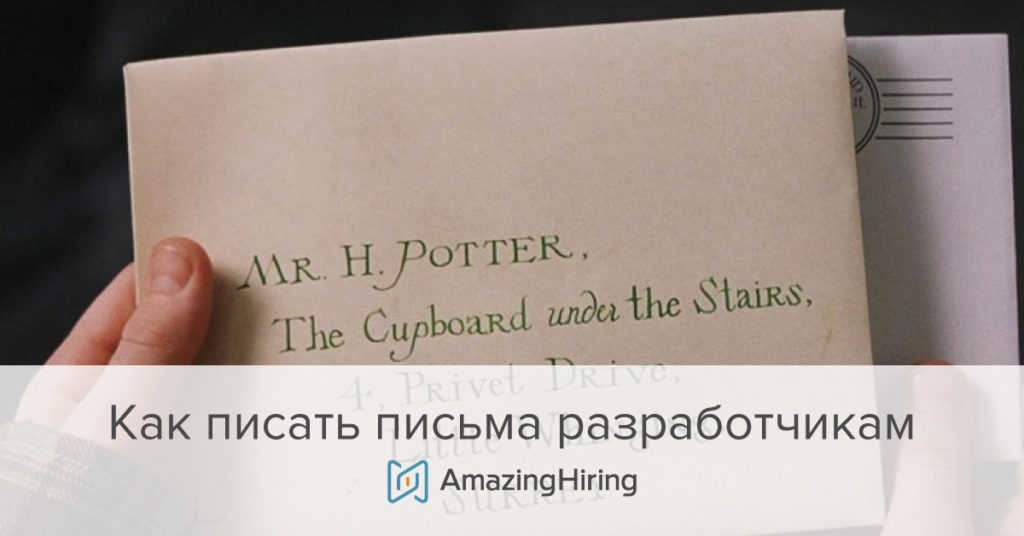 Mr. H. Potter,
The Cupboard under the Stairs,
4, Privet Drive,
Little Whinging
Surrey
Как писать письма разработчикам
AmazingHiring